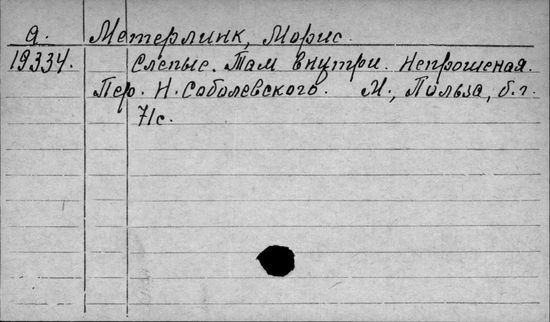 Я. Метерлинк, Морис.
19334. Слепые. Там внутри. Непрошеная.
Пер. Н. Соболевского. М., Польза, б.г.
71с.